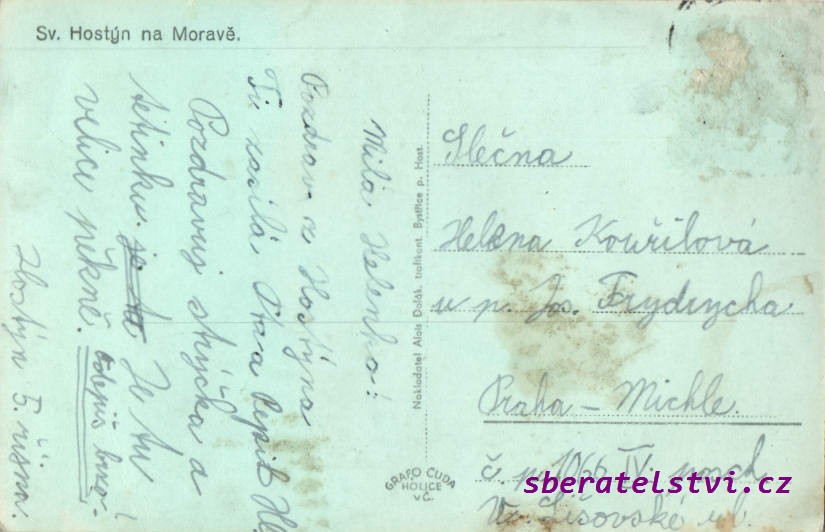 Sv. Hostýn na Moravě.
Milá Helenko!
Pozdrav z Hostýna
Ti zasílá Pepík
Pozdravuj strýčka a
tetinku. je tu Je tu
velice pěkně.
Hostýn 5. října.
Nakladatel Alois Dolák, trafikant, Bystřice p. Host.
GRAFO ČUDA
HOLICE
v Č.
Slečna
Helena Kouřilová
u p. Jos. Frydrycha
Praha – Michle.
č. p. 1066 IV. posch
ul.
sberatelstvi.cz